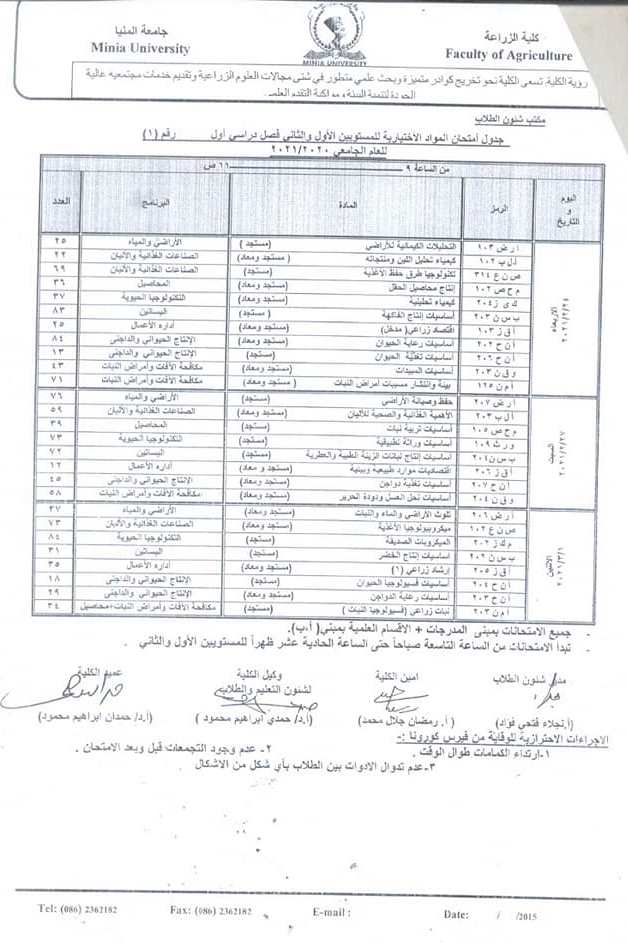 جامعة المنيا
Minia University
MINIA UNIVERSITY
كلية الزراعة
Faculty of Agriculture
رؤية الكلية: تسعى الكلية نحو تخريج كوادر متميزة وبحث علمي متطور في شتى مجالات العلوم الزراعية وتقديم خدمات مجتمعيه عالية
الجودة لتنمية البيئة ومواكبة التقدم العلمى
مكتب شئون الطلاب
جدول أمتحان المواد الاختيارية للمستويين الأول والثانى فصل دراسي أول رقم (١)
للعام الجامعي ٢٠٢١/٢٠٢٠
اليوم و التاريخ | من الساعة ٩ ــ ١١ ص
الرمز | المادة | البرنامج | العدد
الاربعاء ٢٠٢١/٢/٢٤
أ ر ض ١٠٣ | التحليلات الكيمائية للأراضي (مستجد) | الأراضي والمياه | ٢٥
أ ل ب ١٠٢ | كيمياء تحليل اللبن ومنتجاته (مستجد ومعاد) | الصناعات الغذائية والألبان | ٢٢
ص ن ع ٣١٤ | تكنولوجيا طرق حفظ الأغذية (مستجد) | الصناعات الغذائية والألبان | ٦٩
م ح ص ١٠٢ | إنتاج محاصيل الحقل (مستجد ومعاد) | المحاصيل | ٣٦
ك ى ز ٢٠٤ | كيمياء تحليلية (مستجد ومعاد) | التكنولوجيا الحيوية | ٣٧
ب س ن ٢٠٣ | أساسيات إنتاج الفاكهة (مستجد) | البساتين | ٨٣
أ ق ز ١٠٣ | اقتصاد زراعي (مدخل) (مستجد ومعاد) | أداره الأعمال | ٢٥
أ ن ح ٢٠٢ | أساسيات رعاية الحيوان (مستجد ومعاد) | الإنتاج الحيواني والداجنى | ٨٤
أ ن ح | أساسيات تغذية الحيوان (مستجد ومعاد) | الإنتاج الحيواني والداجنى | ١٣
و ق ن ٢٠٣ | أساسيات المبيدات (مستجد ومعاد) | مكافحة الأفات وأمراض النبات | ٤٣
أ م ن ١٢٥ | بيئة وانتشار مسببات أمراض النبات (مستجد ومعاد) | مكافحة الأفات وأمراض النبات | ٧١
السبت ٢٠٢١/٢/٢٧
أ ر ض ٢٠٧ | حفظ وصيانة الأراضي (مستجد) | الأراضي والمياه | ٧٦
أ ل ب ٢٠٣ | الأهمية الغذائية والصحية للألبان (مستجد ومعاد) | الصناعات الغذائية والالبان | ٥٩
م ح ص ١٠٥ | أساسيات تربية نبات (مستجد) | المحاصيل | ٣٩
و ر ث ١٠٩ | أساسيات وراثة تطبيقية (مستجد) | التكنولوجيا الحيوية | ٧٣
ب س ن ٢٠٤ | أساسيات إنتاج نباتات الزينة الطبية والعطرية (مستجد) | البساتين | ٧٢
أ ق ز ٢٠٦ | اقتصاديات موارد طبيعية وبيئية (مستجد و معاد) | أداره الأعمال | ١٢
أ ن ح ٢٠٧ | أساسيات تغذية دواجن (مستجد) | الإنتاج الحيواني والداجنى | ٤٥
و ق ن ٢٠٤ | أساسيات نحل العسل ودودة الحرير (مستجد ومعاد) | مكافحة الأفات وأمراض النبات | ٥٨
الاثنين ٢٠٢١/٣/١
أ ر ض ٢٠٦ | تلوث الأراضي والماء والنبات (مستجد ومعاد) | الأراضي والمياه | ٣٧
ص ن ع ١٠٢ | ميكروبيولوجيا الأغذية (مستجد ومعاد) | الصناعات الغذائية والألبان | ٧٣
م ك ز ٢٠٢ | الميكروبات الصديقة (مستجد) | التكنولوجيا الحيوية | ٨٤
ب س ن ٢٠٢ | اساسيات إنتاج الخضر (مستجد) | البساتين | ٣١
أ ق ز ٢٠٥ | إرشاد زراعي (١) (مستجد و معاد) | أداره الأعمال | ٣٥
أ ن ح ٢٠٤ | أساسيات فسيولوجيا الحيوان (مستجد) | الانتاج الحيواني والداجنى | ١٨
أ ن ح ٢٠٣ | أساسيات رعاية الدواجن (مستجد ومعاد) | الانتاج الحيواني والداجنى | ٢٩
أ م ن ٢٠٣ | نبات زراعي (فسيولوجيا النبات) (مستجد ومعاد) | مكافحة الأفات وأمراض النبات+محاصيل | ٣٤
- جميع الامتحانات بمبنى المدرجات + الاقسام العلمية بمبني( أ،ب).
- تبدأ الامتحانات من الساعة التاسعة صباحاً حتى الساعة الحادية عشر ظهراً للمستويين الأول والثاني
مدير شئون الطلاب
(أ.نجلاء فتحي فؤاد)
امين الكلية
(أ. رمضان جلال محمد)
وكيل الكلية
لشئون التعليم والطلاب
(أ.د/ حمدي ابراهيم محمود)
عميد الكلية
(أ.د/ حمدان ابراهيم محمود)
الاجراءات الاحترازية للوقاية من فيرس كورونا :-
١-ارتداء الكمامات طوال الوقت.
٢- عدم وجود التجمعات قبل وبعد الامتحان .
٣-عدم تدوال الادوات بين الطلاب بآي شكل من الاشكال
Tel: (086) 2362182 Fax: (086) 2362182 E-mail : Date: / /2015